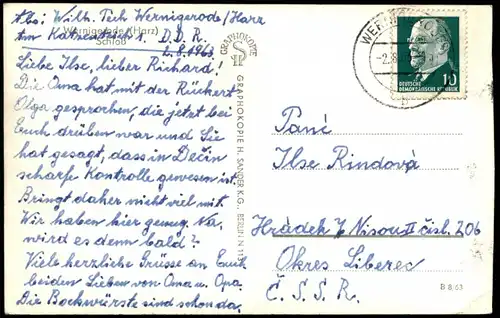 Abs: Wilh. Tech Wernigerode/Harz
Am Katzenteich 1. D.D.R.
Wernigerode (Harz)
Schloß
2.8.1963
Liebe Ilse, lieber Richard!
Die Oma hat mit der Rückert
Olga gesprochen, die jetzt bei
Euch drüben war und Sie
hat gesagt, dass in Dečin
scharfe Kontrolle gewesen ist.
Bringt daher nicht viel mit.
Wir haben hier genug. Na,
wird es denn bald?
Viele herzliche Grüsse an Euch
beiden Lieben von Oma u. Opa.
Die Bockwürste sind schon da.
GRAPHOKOPIE
GRAPHOKOPIE H. SANDER K.G., BERLIN
WERNIGERODE
-2.8.
10
DEUTSCHE
DEMOKRATISCHE REPUBLIK
Paní
Ilse Rindová
Hrádek N/ Nisou II čisl. 206
Okres Liberec
Č. S. S. R.
B 8/63